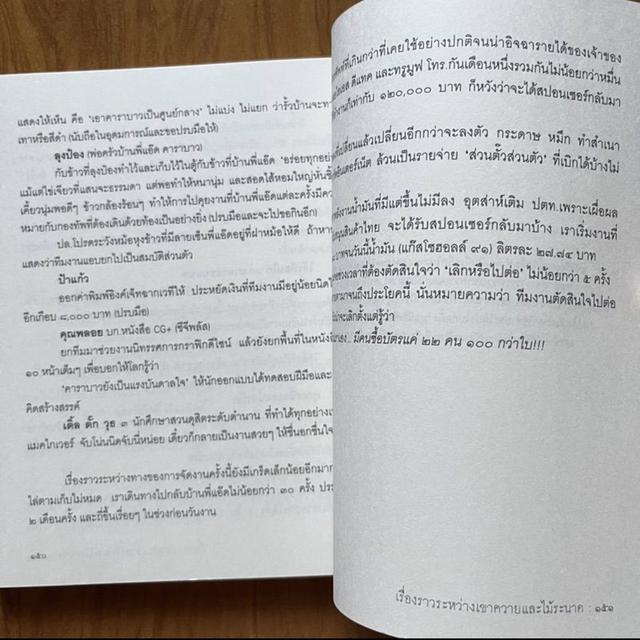 แสดงให้เห็น คือ 'เอาคาราบาวเป็นศูนย์กลาง' ไม่แบ่ง ไม่แยก ว่ารั้วบ้านจะทา
เทาหรือสีดำ (นับถือในอุดมการณ์และขอปรบมือให้)
ลุงป๋อง (พ่อครัวบ้านพี่แอ๊ด คาราบาว)
กับข้าวที่ลุงป๋องทำไว้และเก็บไว้ในตู้กับข้าวที่บ้านพี่แอ๊ด 'อร่อยทุกอย่าง
แม้แต่ไข่เจียวที่แสนจะธรรมดา แต่พอทำให้หนานุ่ม และสอดไส้หอมใหญ่หั่นชิ้
เคี้ยวนุ่มพอดีๆ ข้าวกล้องร้อนๆ ทำให้การไปคุยงานที่บ้านพี่แอ๊ดแต่ละครั้งมีควา
หมายกับกองทัพที่ต้องเดินด้วยท้องเป็นอย่างยิ่ง (ปรบมือและจะไปขอกินอีก)
ปล.โปรดระวังหม้อหุงข้าวที่มีลายเซ็นพี่แอ๊ดอยู่ที่ฝาหม้อให้ดี ถ้าหา
แสดงว่าทีมงานแอบยกไปเป็นสมบัติส่วนตัว
ป้าแก้ว
ออกค่าพิมพ์อิงค์เจ็ทฉากเวทีให้ ประหยัดเงินที่ทีมงานมีอยู่น้อยนิดไ
อีกเกือบ ๘,๐๐๐ บาท (ปรบมือ)
คุณพลอย บก.หนังสือ CG+ (ซีจีพลัส)
ยกทีมมาช่วยงานนิทรรศการกราฟิกดีไซน์ แล้วยังยกพื้นที่ในหนังสื
๑๐ หน้าเต็มๆ เพื่อบอกให้โลกรู้ว่า
'คาราบาวยังเป็นแรงบันดาลใจ' ให้นักออกแบบได้ทดสอบฝีมือและ
คิดสร้างสรรค์
เติ้ล ตั๊ก วุธ ๓ นักศึกษาสวนดุสิตระดับตำนาน ที่ทำได้ทุกอย่าง
แมคไกเวอร์ จับโน่นนิดจับนี่หน่อย เดี๋ยวก็กลายเป็นงานสวยๆ ให้ชื่นอกชื่นใจ
เรื่องราวระหว่างทางของการจัดงานครั้งนี้ยังมีเกร็ดเล็กน้อยอีกมาก
ไล่ตามเก็บไม่หมด เราเดินทางไปกลับบ้านพี่แอ๊ดไม่น้อยกว่า ๓๐ ครั้ง
๒ เดือนครึ่ง และถี่ขึ้นเรื่อยๆ ในช่วงก่อนวันงาน
๑๕๐
ที่เกินกว่าที่เคยใช้อย่างปกติจนน่าอิจฉารายได้ของเจ้าของ
ดีแทค และทรูมูฟ โทร.กันเดือนหนึ่งรวมกันไม่น้อยกว่าหมื่น
เท่ากับ ๑๒๐,๐๐๐ บาท ก็หวังว่าจะได้สปอนเซอร์กลับมา
เปลี่ยนแล้วเปลี่ยนอีกกว่าจะลงตัว กระดาษ หมึก ทำสำเนา
ล้วนเป็นรายจ่าย 'ส่วนตั๊วส่วนตัว' ที่เบิกได้บ้างไม่
น้ำมันที่มีแต่ขึ้นไม่มีลง อุตส่าห์เติม ปตท.เพราะเผื่อผล
สินค้าไทย จะได้รับสปอนเซอร์กลับมาบ้าง เราเริ่มงานที่
บาทจนวันนี้น้ำมัน (แก๊สโซฮอลล์ ๙๑) ลิตรละ ๒๗.๗๔ บาท
ช่วงเวลาที่ต้องตัดสินใจว่า 'เลิกหรือไปต่อ' ไม่น้อยกว่า ๕ ครั้ง
มาจนถึงประโยคนี้ นั่นหมายความว่า ทีมงานตัดสินใจไปต่อ
เลิกตั้งแต่รู้ว่า
มีคนซื้อบัตรแค่ ๒๒ คน ๑๐๐ กว่าใบ!!!
เรื่องราวระหว่างเขาควายและไม้ระนาด : ๑๕๑